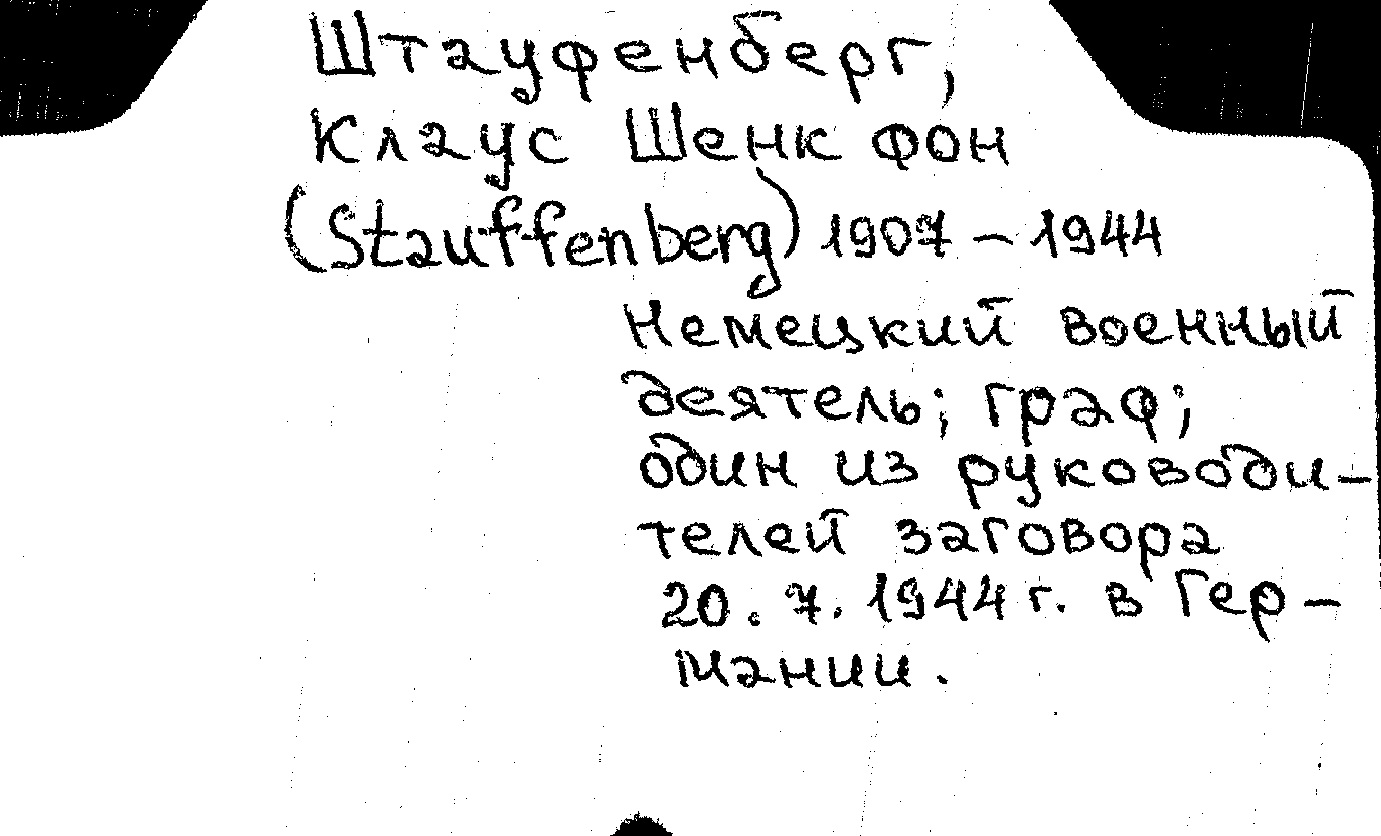 Штауфенберг,
Клаус Шенк фон
(Stauffenberg) 1907 – 1944
Немецкий военный
деятель; граф;
один из руководи-
телей заговора
20. 7. 1944 г. в Гер-
мании.